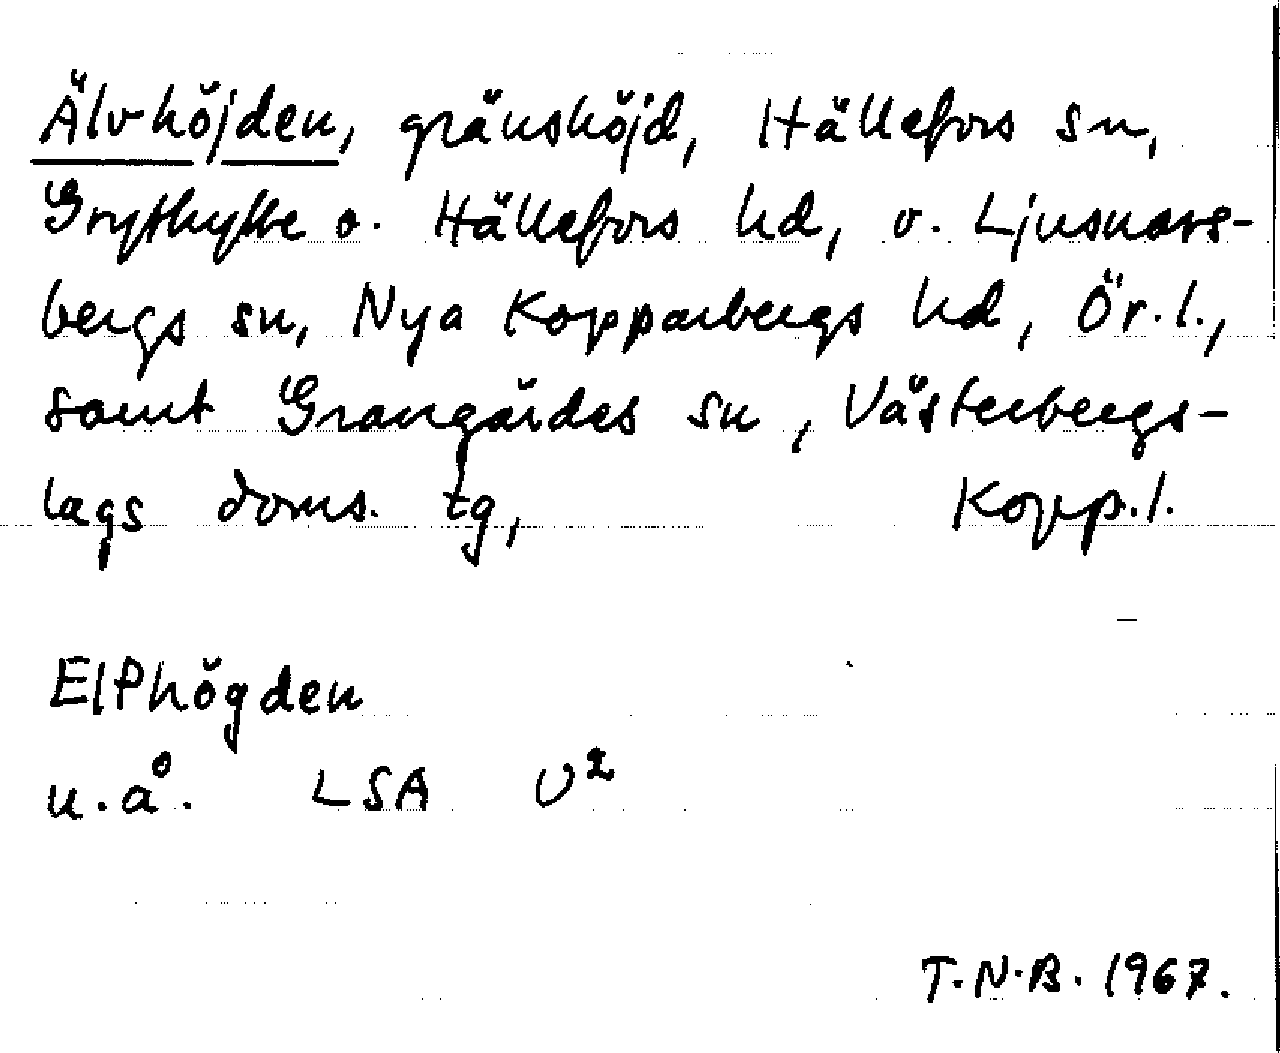 Älvhöjden, gränshöjd, Hällefors sn,
Grythytte o. Hällefors hd, o. Ljusnars-
bergs sn, Nya Kopparbergs hd, Ör.l.,
samt Grangärdes sn, Västerbergs-
lags doms. tg, Kopp.l.
Elfhögden
u.å. LSA U²
T.N.B. 1967.